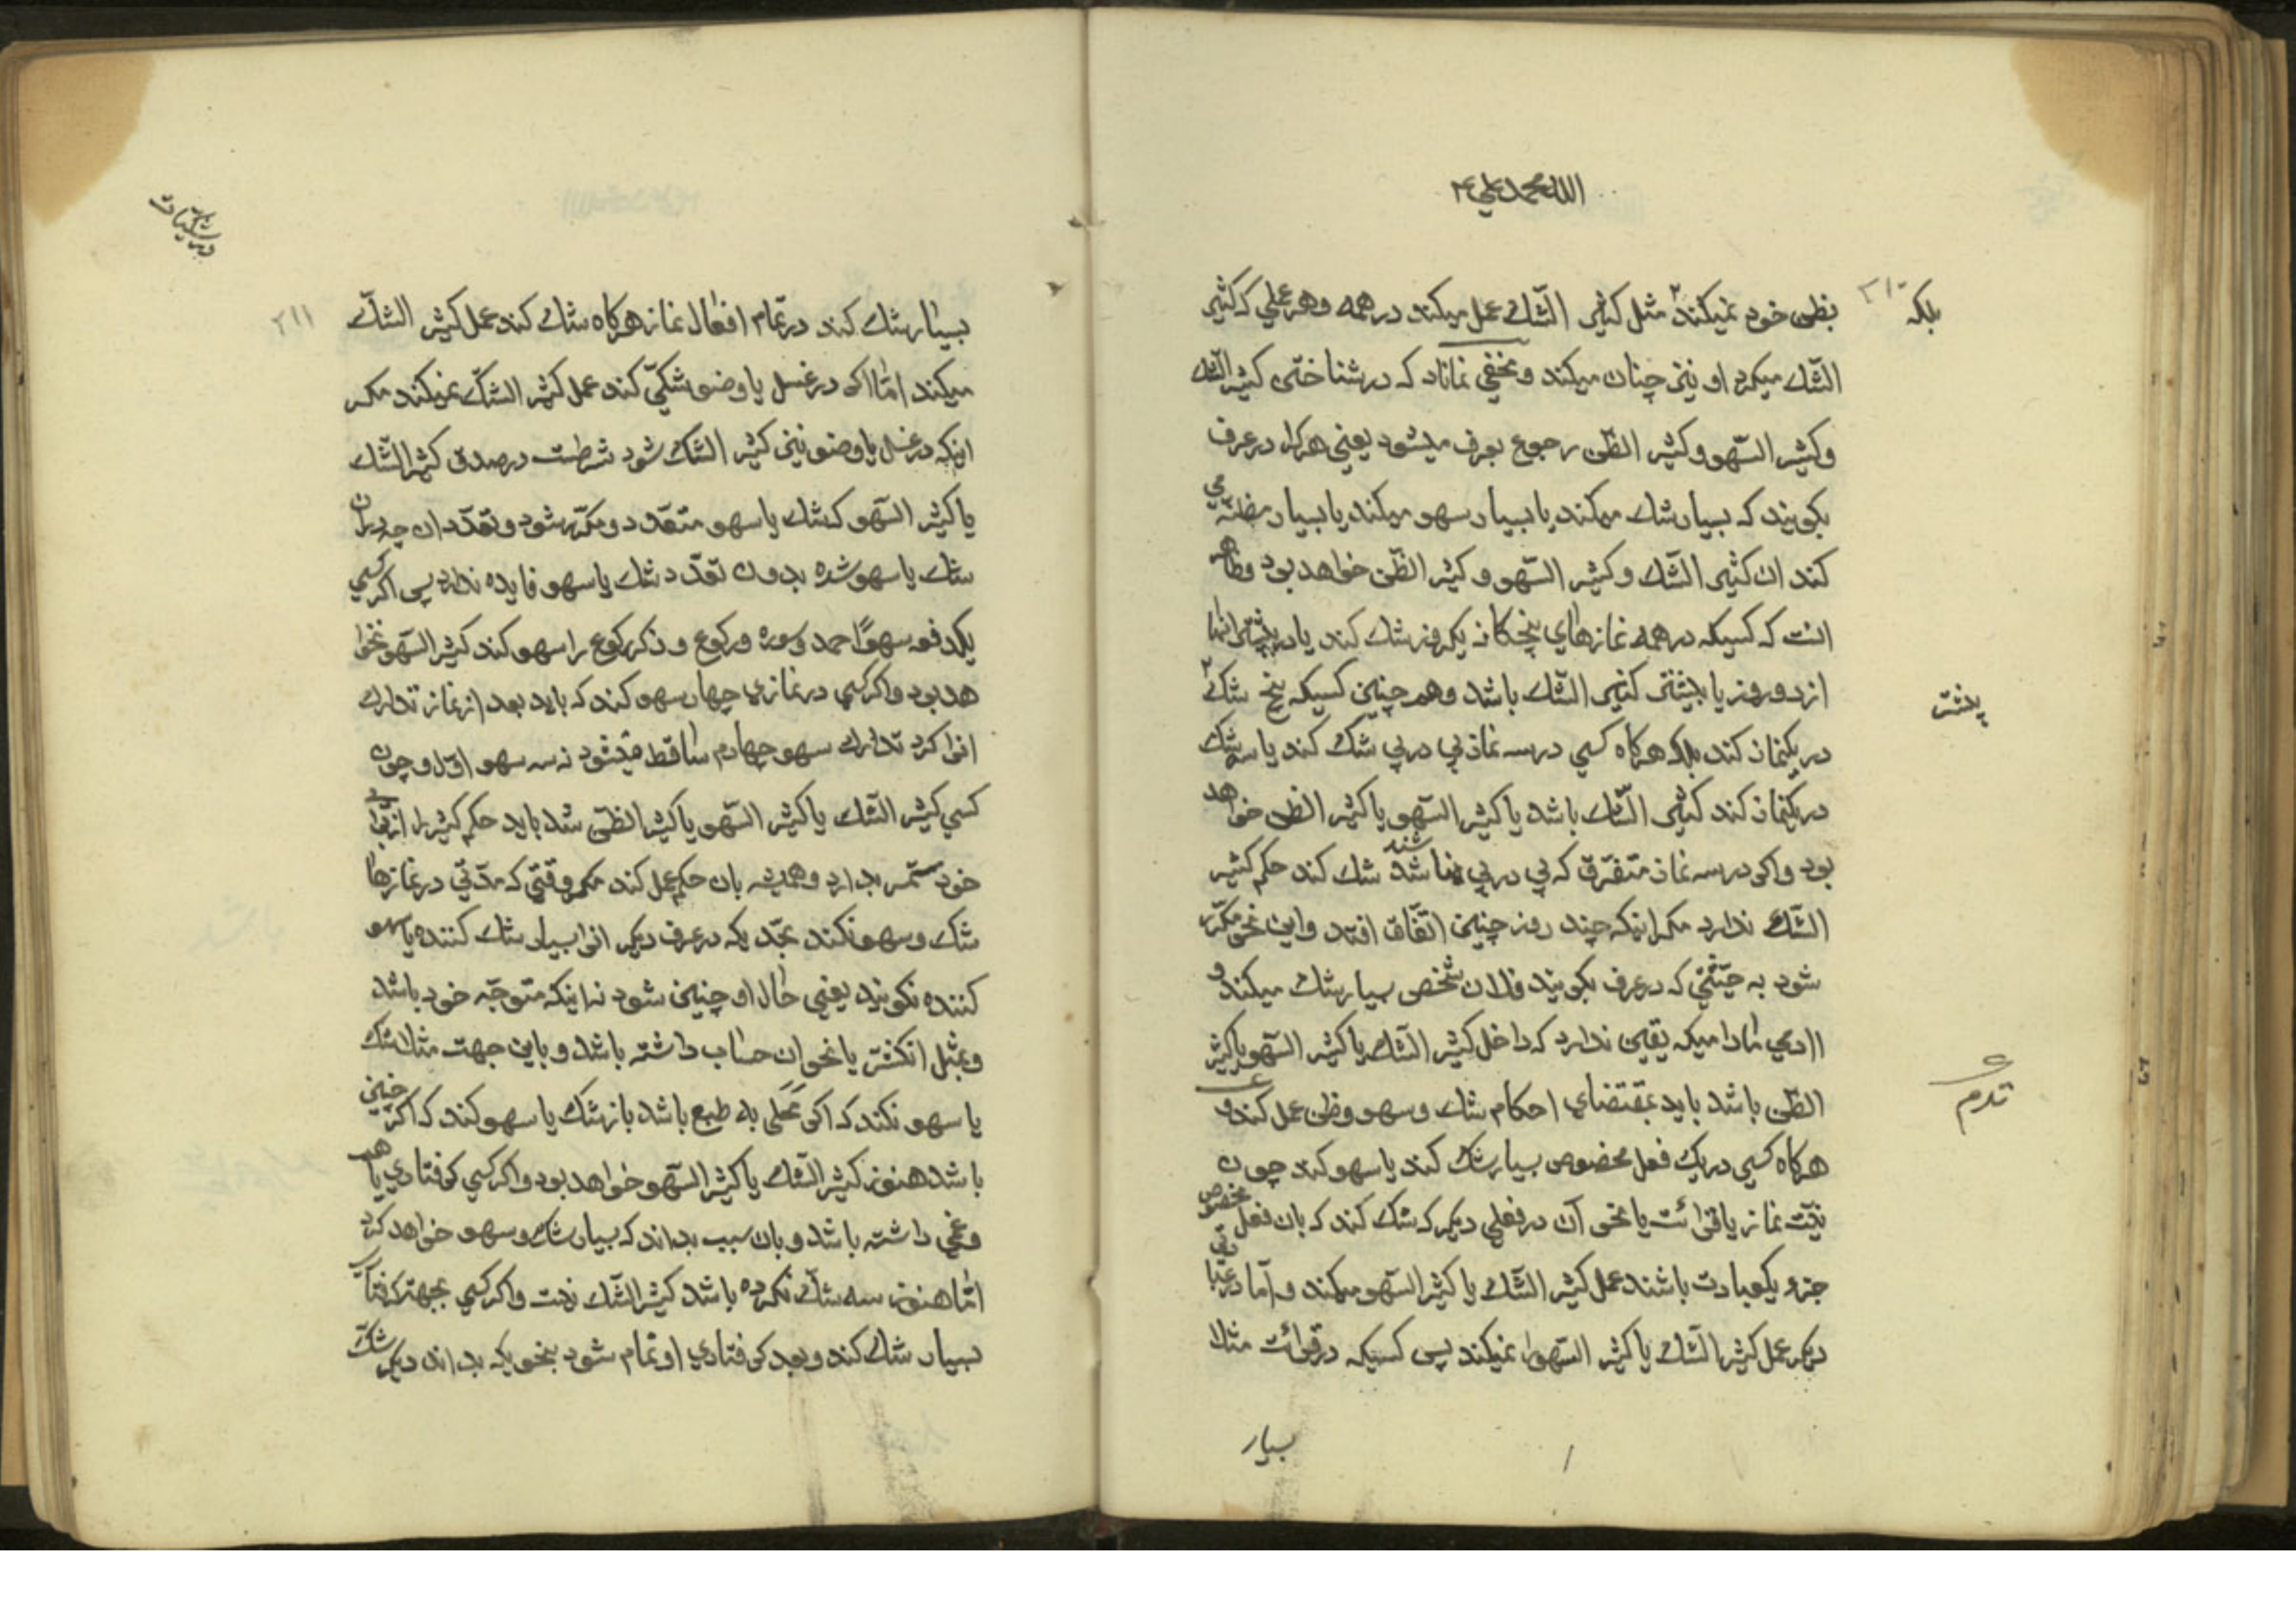 الله محمد علی
۲۱۰
بلکه
بظن خود نمیکند مثل کثیر الشّک عمل میکند در همه و هر عملی که کثیر
الشّک میکرد او نیز چنان میکند و مخفی نماناد که در شناختن کثیر الشّک
و کثیر السّهو و کثیر الظّن رجوع بعرف میشود یعنی هرکرا در عرف
بکویند که بسیار شک میکند یا بسیار سهو میکند یا بسیار مظنّه می
کند ان کثیر الشّک و کثیر السّهو و کثیر الظّن خواهد بود و ظاهر
انست که کسیکه در همه نمازهای پنجکانه یکروز شک کند یا در بیشتر انها
از دو روز یا بیشتر کثیر الشّک باشد و هم چنین کسیکه پنج شک
در یکنماز کند بلکه هرکاه کسی در سه نماز پی در پی شک کند یا سه شک
در یکنماز کند کثیر الشّک باشد یا کثیر السّهو یا کثیر الظن خواهد
بود و اکر در سه نماز متفرّق که پی در پی نباشند شک کند حکم کثیر
الشّک ندارد مکر اینکه چند روز چنین اتّفاق افتد و این نحو مکرّر
شود به حیثیّتی که در عرف بکویند فلان شخص بسیار شک میکند و
ادمی مادامیکه یقین ندارد که داخل کثیر الشّک یا کثیر السّهو یا کثیر
الظّن باشد باید بمقتضای احکام شک و سهو و ظن عمل کند و
هرکاه کسی در یک فعل مخصوص بسیار شک کند یا سهو کند چون
نیّت نماز یا قرائت یا نحو آن در فعلی دیکر که شک کند که بان فعل مخصوص
جزء یکعبادت باشند عمل کثیر الشّک یا کثیر السّهو میکند و امّا در عبادتی
دیکر عمل کثیر الشّک یا کثیر السّهو را نمیکند پس کسیکه در قرائت مثلا
بسیار
۲۱۱
بسیار شک کند در تمام افعال نماز هرکاه شک کند عمل کثیر الشّک
میکند امّا اکر در غسل یا وضو شکّی کند عمل کثیر الشّک نمیکند مکر
اینکه در غسل یا وضو نیز کثیر الشّک شود شرطست در صدق کثیر الشّک
یا کثیر السّهو که شک یا سهو متعدّد و مکرّر شود و تعدّد ان چیزیکه در ان
شک یا سهو شده بدون تعدّد شک یا سهو فایده ندارد پس اکر کسی
یکدفعه سهوًا حمد و سوره و رکوع و ذکر رکوع را سهو کند کثیر السّهو نخوا
هد بود و اکر کسی در نمازی چهار سهو کند که باید بعد از نماز تدارک
انرا کرد تدارک سهو چهارم ساقط میشود نه سه سهو اوّل و چون
کسی کثیر الشّک یا کثیر السّهو یا کثیر الظنّ شد باید حکم کثیر را از برای
خود مستمر بدارد و همیشه بان حکم عمل کند مکر وقتی که مدّتی در نمازها
شک و سهو نکند بحدّیکه در عرف دیکر انرا بسیار شک کننده یا سهو
کننده نکویند یعنی حال او چنین شود نه اینکه متوجّه خود باشد
و بمثل انکشتر یا نحو ان حساب داشته باشد و باین جهت مثلا شک
یا سهو نکند که اکر مخلّی به طبع باشد باز شک یا سهو کند که اکر چنین
باشد هنوز کثیر الشّک یا کثیر السّهو خواهد بود و اکر کسی کرفتاری یا هم
و غمّی داشته باشد و بان سبب بداند که بسیار شک و سهو خواهد کرد
امّا هنوز سه شک نکرده باشد کثیر الشّک نیست و اکر کسی بجهة کرفتاری
بسیار شک کند و بعد کرفتاری او تمام شود بنحویکه بداند دیکر شک